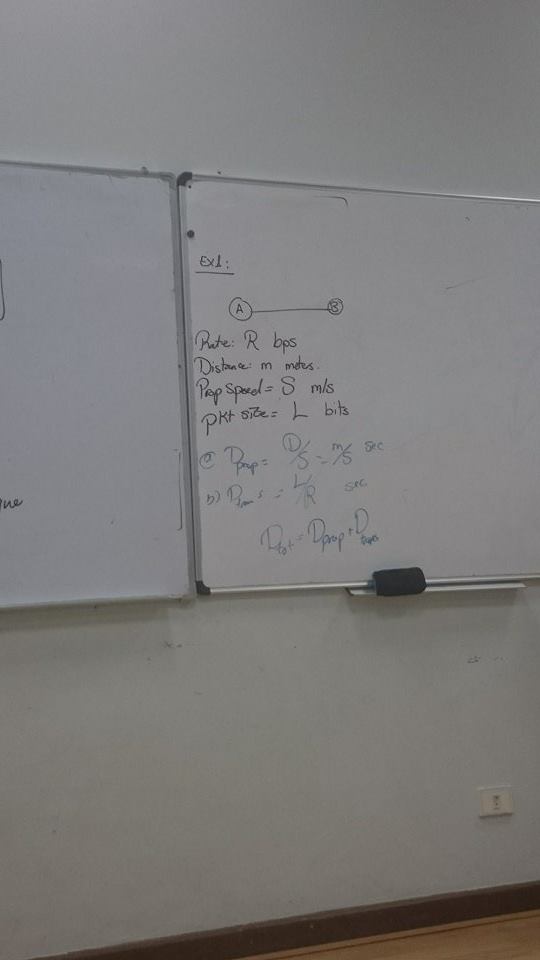 Ex1:
A B
Rate: R bps
Distance: m meters.
Prop Speed = S m/s
Pkt size = L bits
a) Dprop = D/S = m/S sec
b) Dtrans = L/R sec
Dtot = Dprop + Dtrans